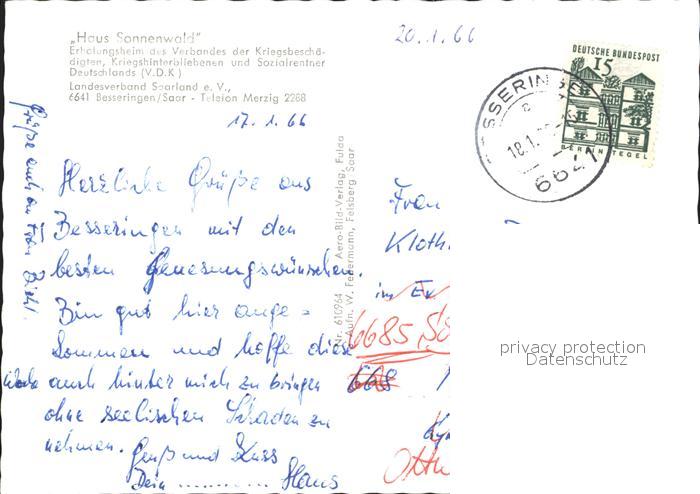 „Haus Sonnenwald"
Erholungsheim des Verbandes der Kriegsbeschä-
digten, Kriegshinterbliebenen und Sozialrentner
Deutschlands (V.D.K)
Landesverband Saarland e. V.,
6641 Besseringen/Saar - Telefon Merzig 2268
20.1.66
DEUTSCHE BUNDESPOST
15
BERLIN TEGEL
SSERINGE
18.1.
6641
17.1.66
Herzliche Grüße aus
Besseringen mit den
besten Genesungswünschen.
Bin gut hier ange-
kommen und hoffe diese
Woche auch hinter mich zu bringen
ohne seelischen Schaden zu
nehmen. Gruß und Kuss
Dein .......... Hans
Grüße auch an Frau
Nr. 610964 Aero-Bild-Verlag, Fulda
Aufn. W. Federmann, Felsberg Saar
Frau
Kloth
im Ev
6685
668
privacy protection
Datenschutz